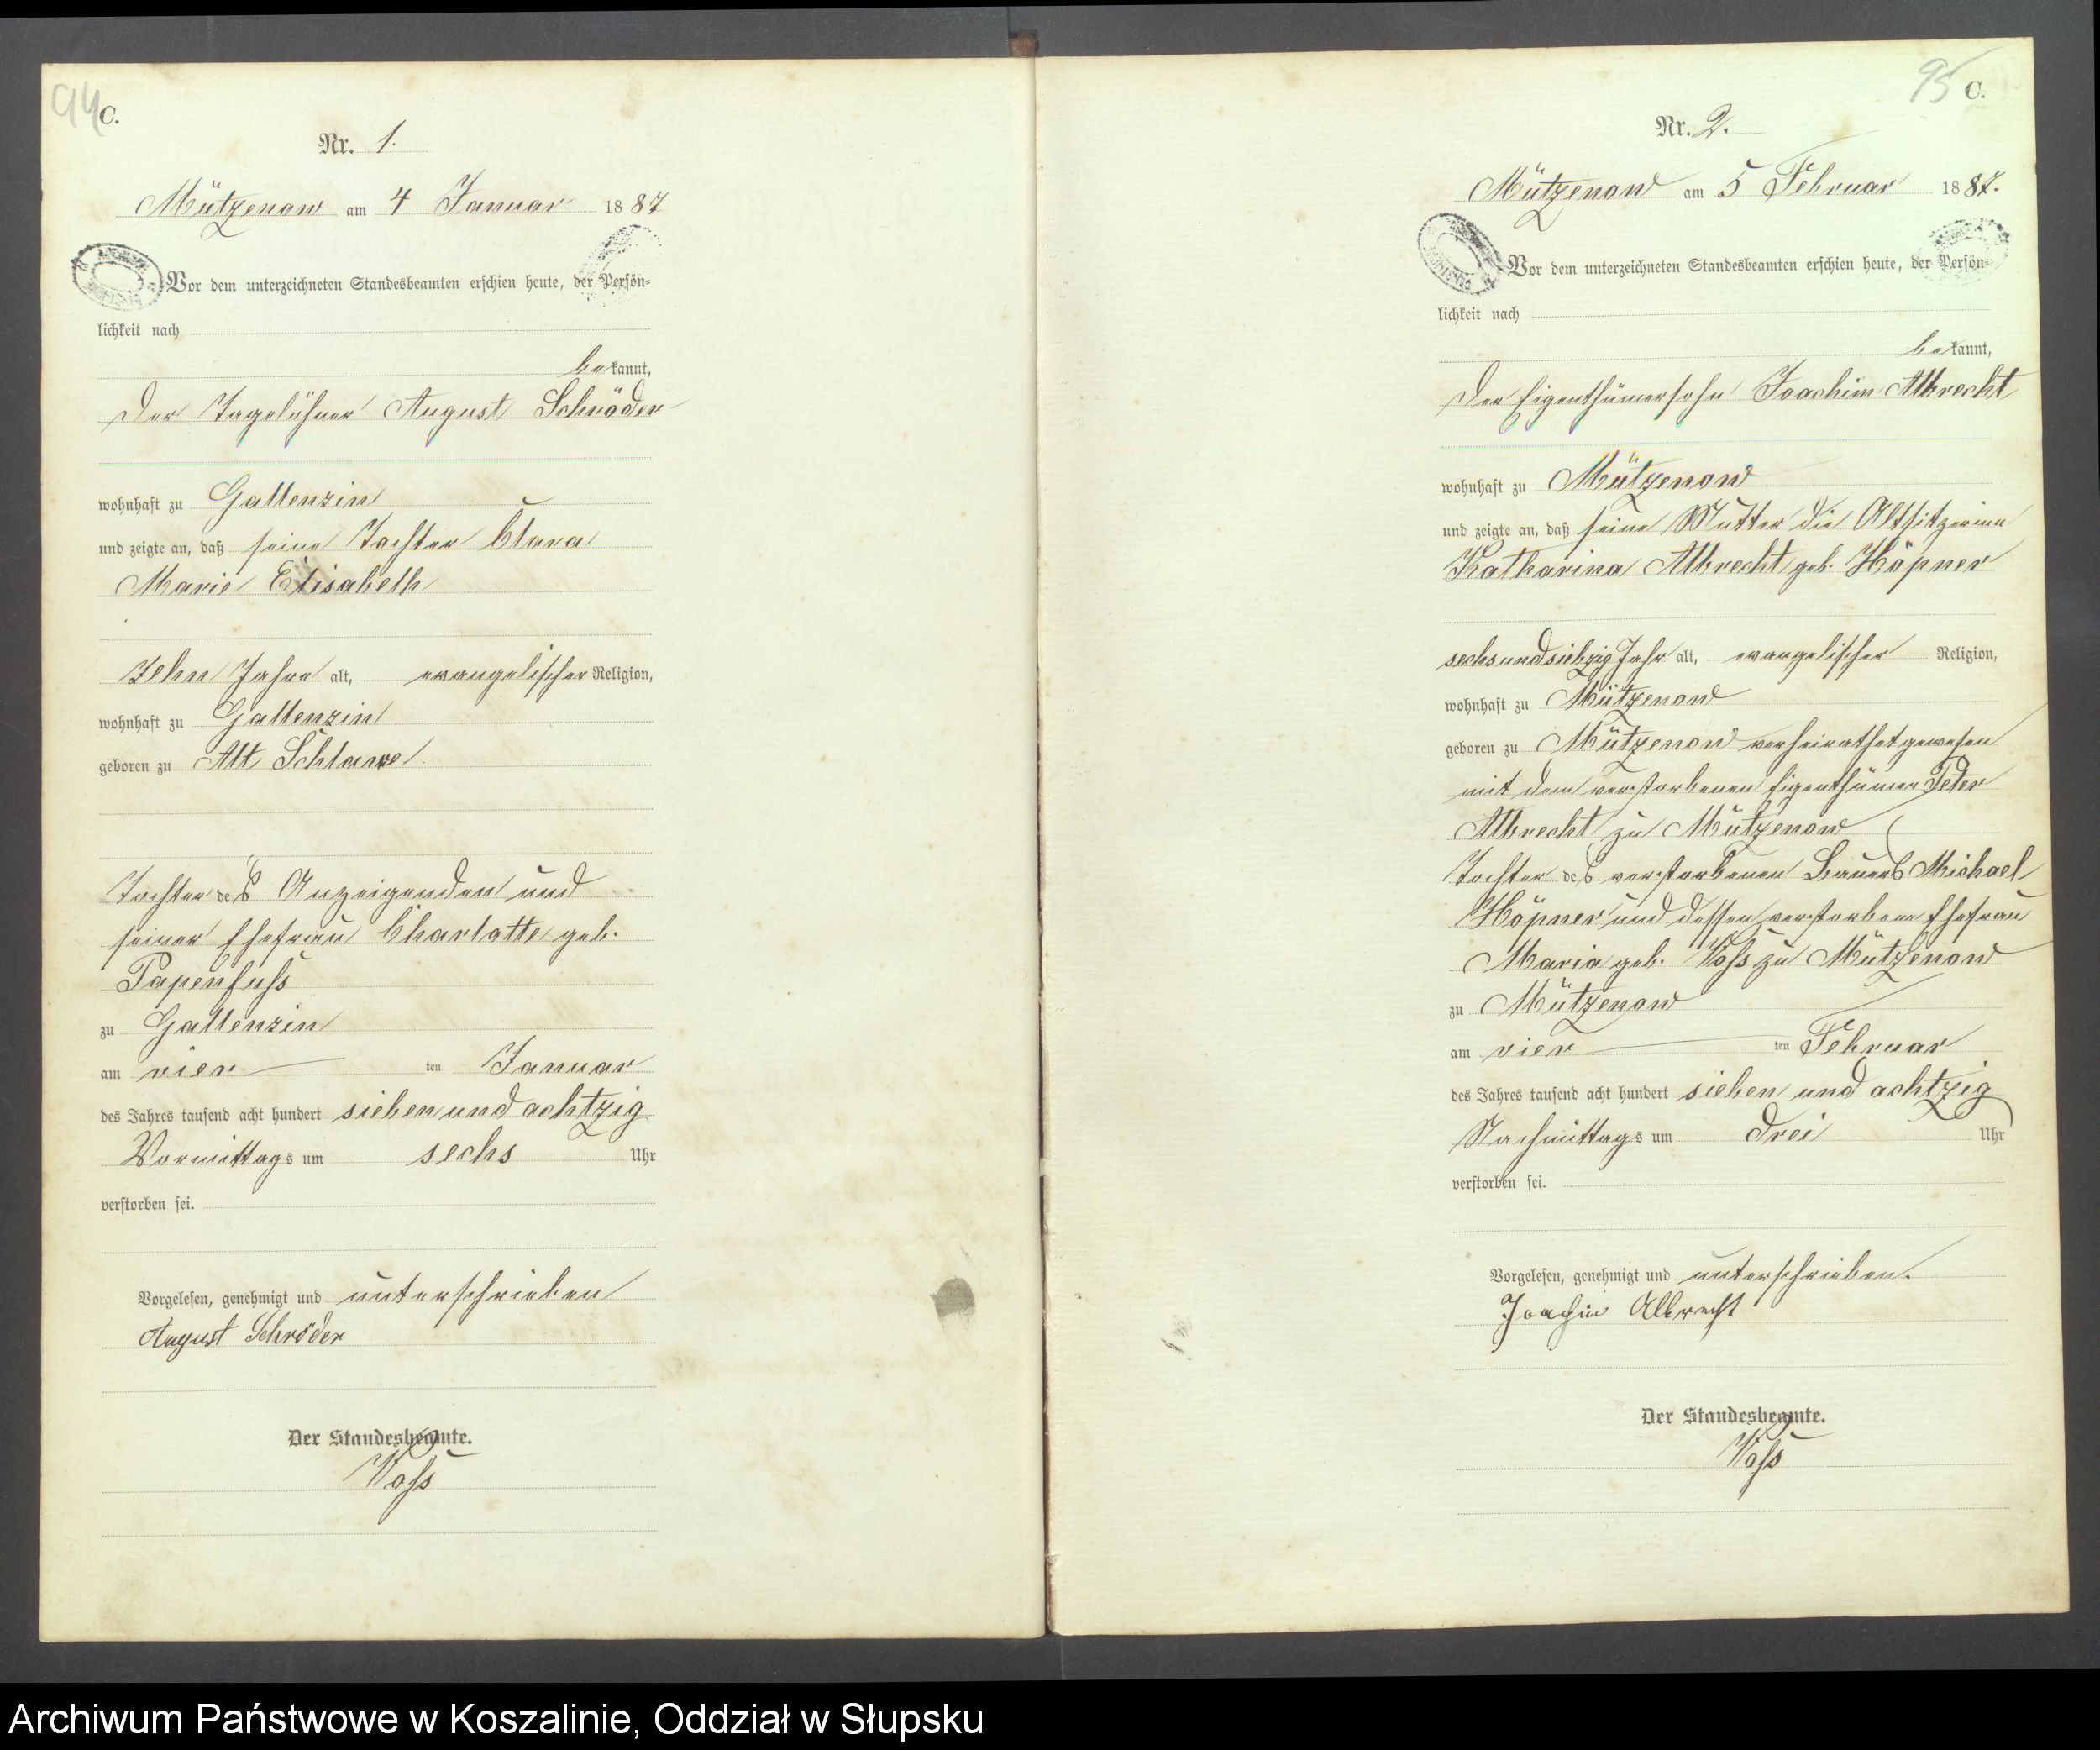 94 C.
Nr. 1.
Mützenow am 4 Januar 1887
Vor dem unterzeichneten Standesbeamten erschien heute, der Persön-
lichkeit nach
bekannt,
der Tagelöhner August Schröder
wohnhaft zu Gallenzin
und zeigte an, daß seine Tochter Clara
Marie Elisabeth
zehn Jahre alt, evangelischer Religion,
wohnhaft zu Gallenzin
geboren zu Alt Schlawe
Tochter des Anzeigenden und
seiner Ehefrau Charlotte geb.
Papenfuß
zu Gallenzin
am vier ten Januar
des Jahres tausend acht hundert sieben und achtzig
Vormittags um sechs Uhr
verstorben sei.
Vorgelesen, genehmigt und unterschrieben
August Schröder
Der Standesbeamte.
Voß
95 C.
Nr. 2.
Mützenow am 5 Februar 1887.
Vor dem unterzeichneten Standesbeamten erschien heute, der Persön-
lichkeit nach
bekannt,
der Eigenthümersohn Joachim Albrecht
wohnhaft zu Mützenow
und zeigte an, daß seine Mutter die Altsitzerinn
Katharina Albrecht geb. Höpner
sechsundsiebzig Jahr alt, evangelischer Religion,
wohnhaft zu Mützenow
geboren zu Mützenow verheirathet gewesen
mit dem verstorbenen Eigenthümer Peter
Albrecht zu Mützenow
Tochter des verstorbenen Bauers Michael
Höpner und dessen verstorbene Ehefrau
Maria geb. Voß zu Mützenow
zu Mützenow
am vier ten Februar
des Jahres tausend acht hundert sieben und achtzig
Nachmittags um drei Uhr
verstorben sei.
Vorgelesen, genehmigt und unterschrieben.
Joachim Albrecht
Der Standesbeamte.
Voß
Archiwum Państwowe w Koszalinie, Oddział w Słupsku